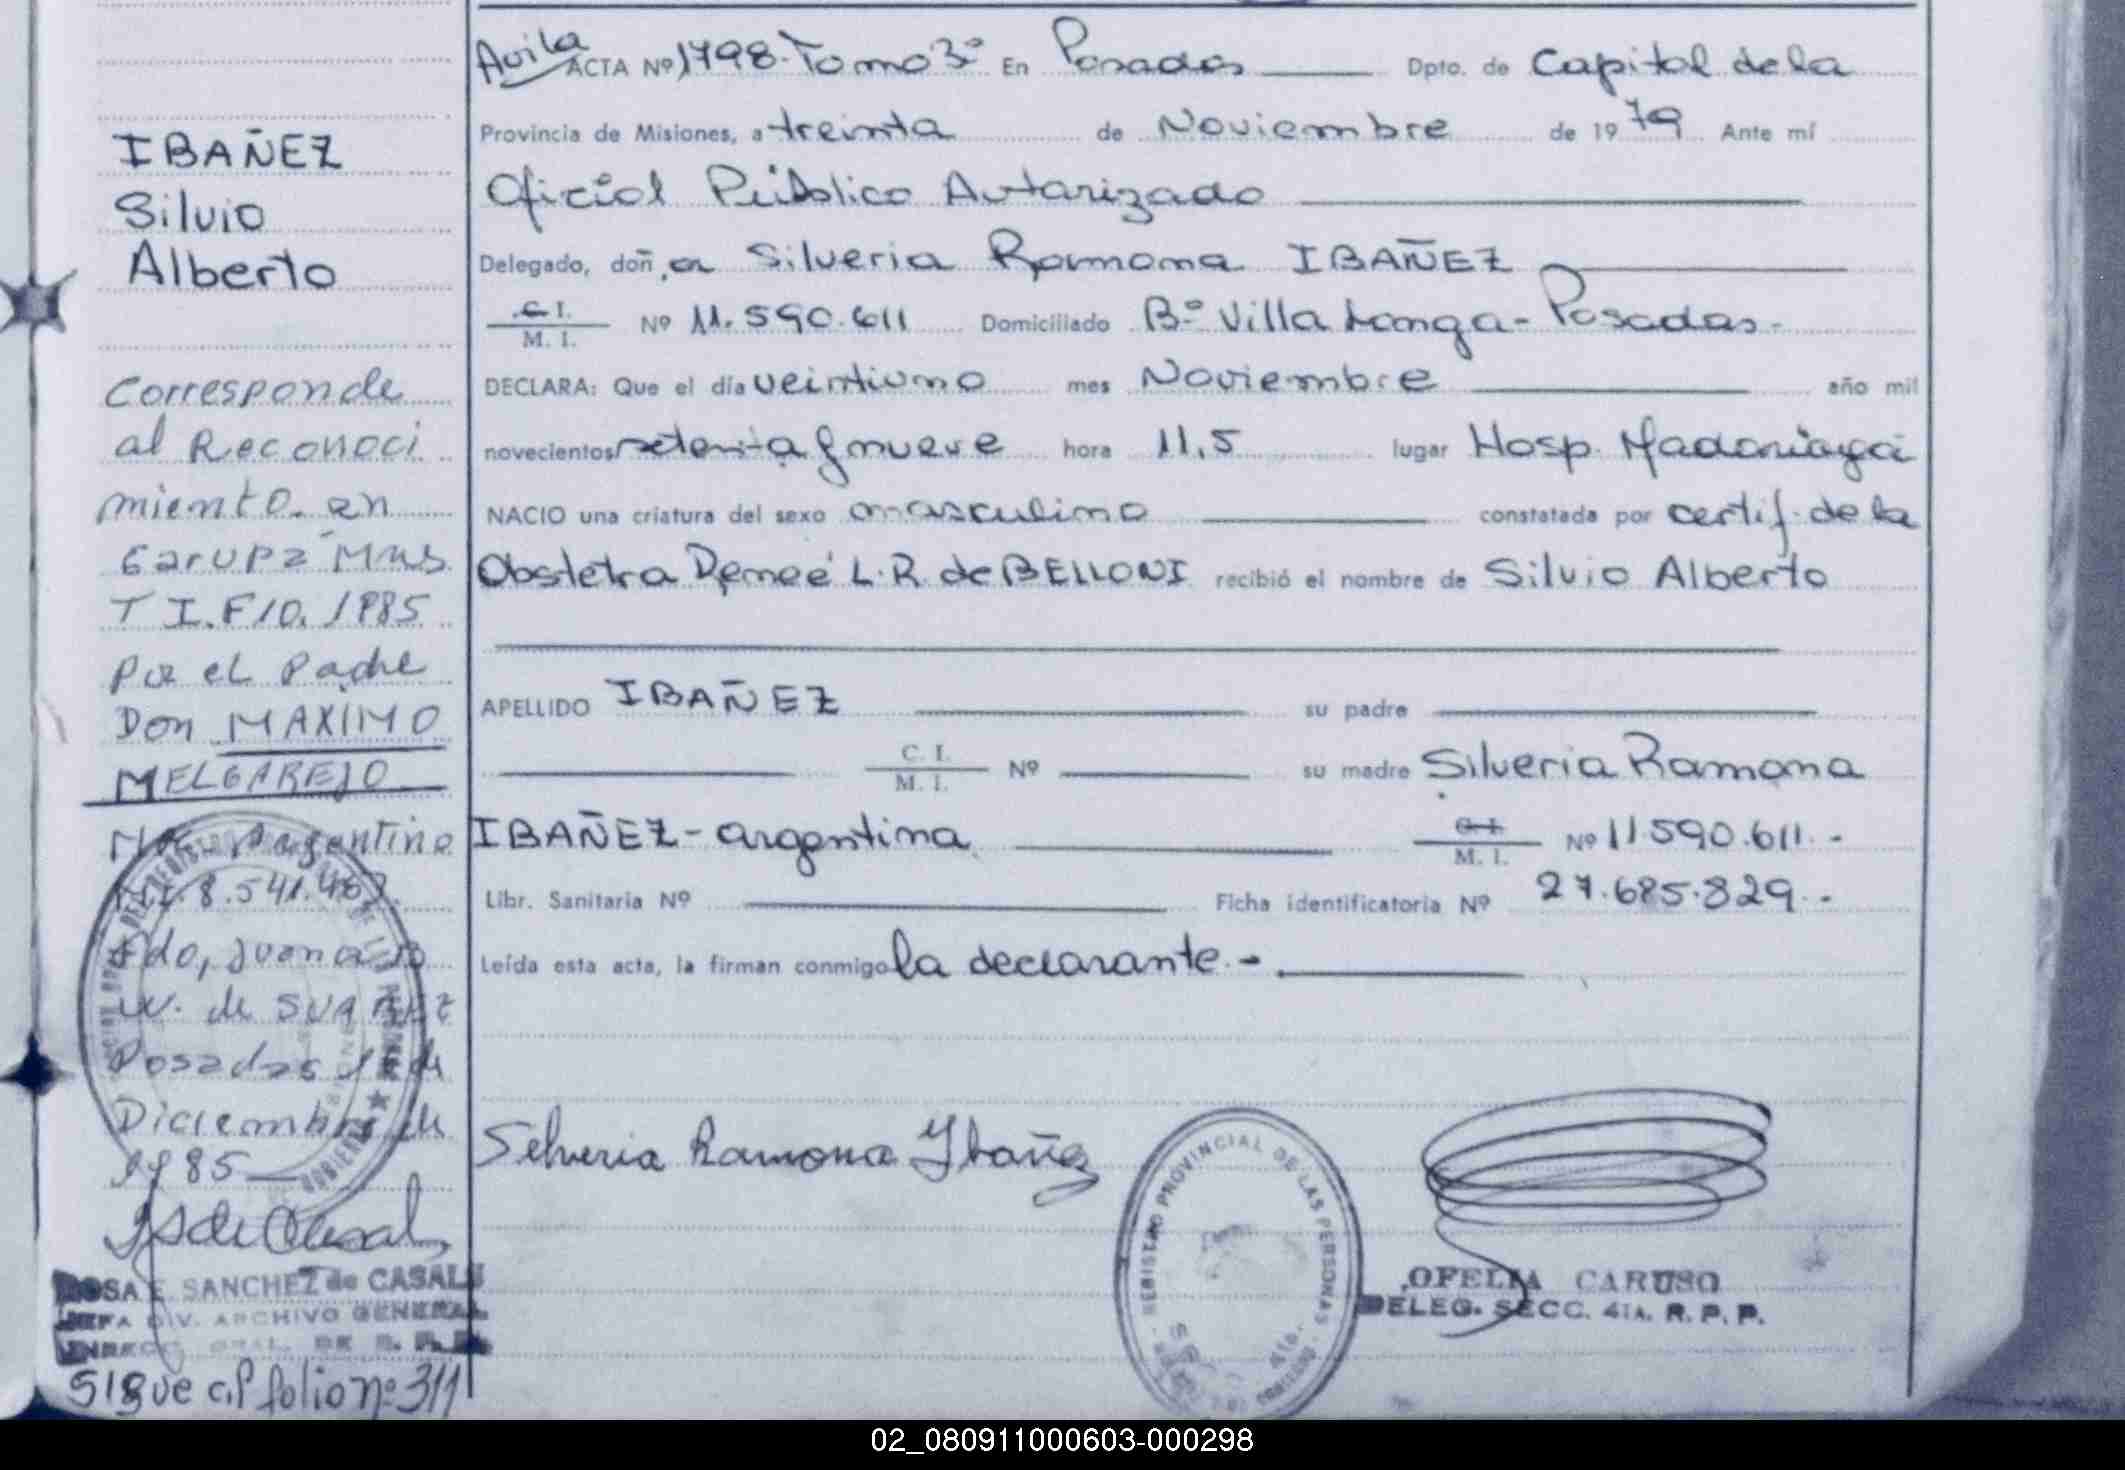 IBAÑEZ
Silvio
Alberto
Corresponde
al Reconoci
miento en
Garupá Mns
T I. F10. 1985
Por el Padre
Don MAXIMO
MELGAREJO
Argentino
M.I. 8.541.467.
Fdo, Juana B
de SUAREZ
Posadas de
Diciembre de
1985
ROSA E. SANCHEZ de CASALS
JEFA DIV. ARCHIVO GENERAL
DIRECC. GRAL. DE R. P. P.
Sigue al folio nº 311
Avila
ACTA Nº 1798-Tomo 3º En Posadas Dpto. de Capital de la
Provincia de Misiones, a treinta de Noviembre de 1979 Ante mí
Oficial Público Autorizado
Delegado, doña Silveria Ramona IBAÑEZ
C. I.
M. I. Nº 11.590.611 Domiciliado Bº Villa Longa - Posadas.-
DECLARA: Que el día veintiuno mes Noviembre año mil
novecientos setenta y nueve hora 11,5 lugar Hosp. Madariaga
NACIO una criatura del sexo masculino constatada por certif. de la
Obstetra L.R. de BELLONI recibió el nombre de Silvio Alberto
APELLIDO IBAÑEZ su padre
C. I.
M. I. Nº su madre Silveria Ramona
IBAÑEZ - argentina C. I.
M. I. Nº 11590.611.-
Libr. Sanitaria Nº Ficha identificatoria Nº 27.685.829.-
Leída esta acta, la firman conmigo la declarante.-
Selveria Ramona Ybañez
REGISTRO PROVINCIAL DE LAS PERSONAS
OFELIA CARUSO
DELEG. SECC. 4TA. R. P. P.
02_080911000603-000298